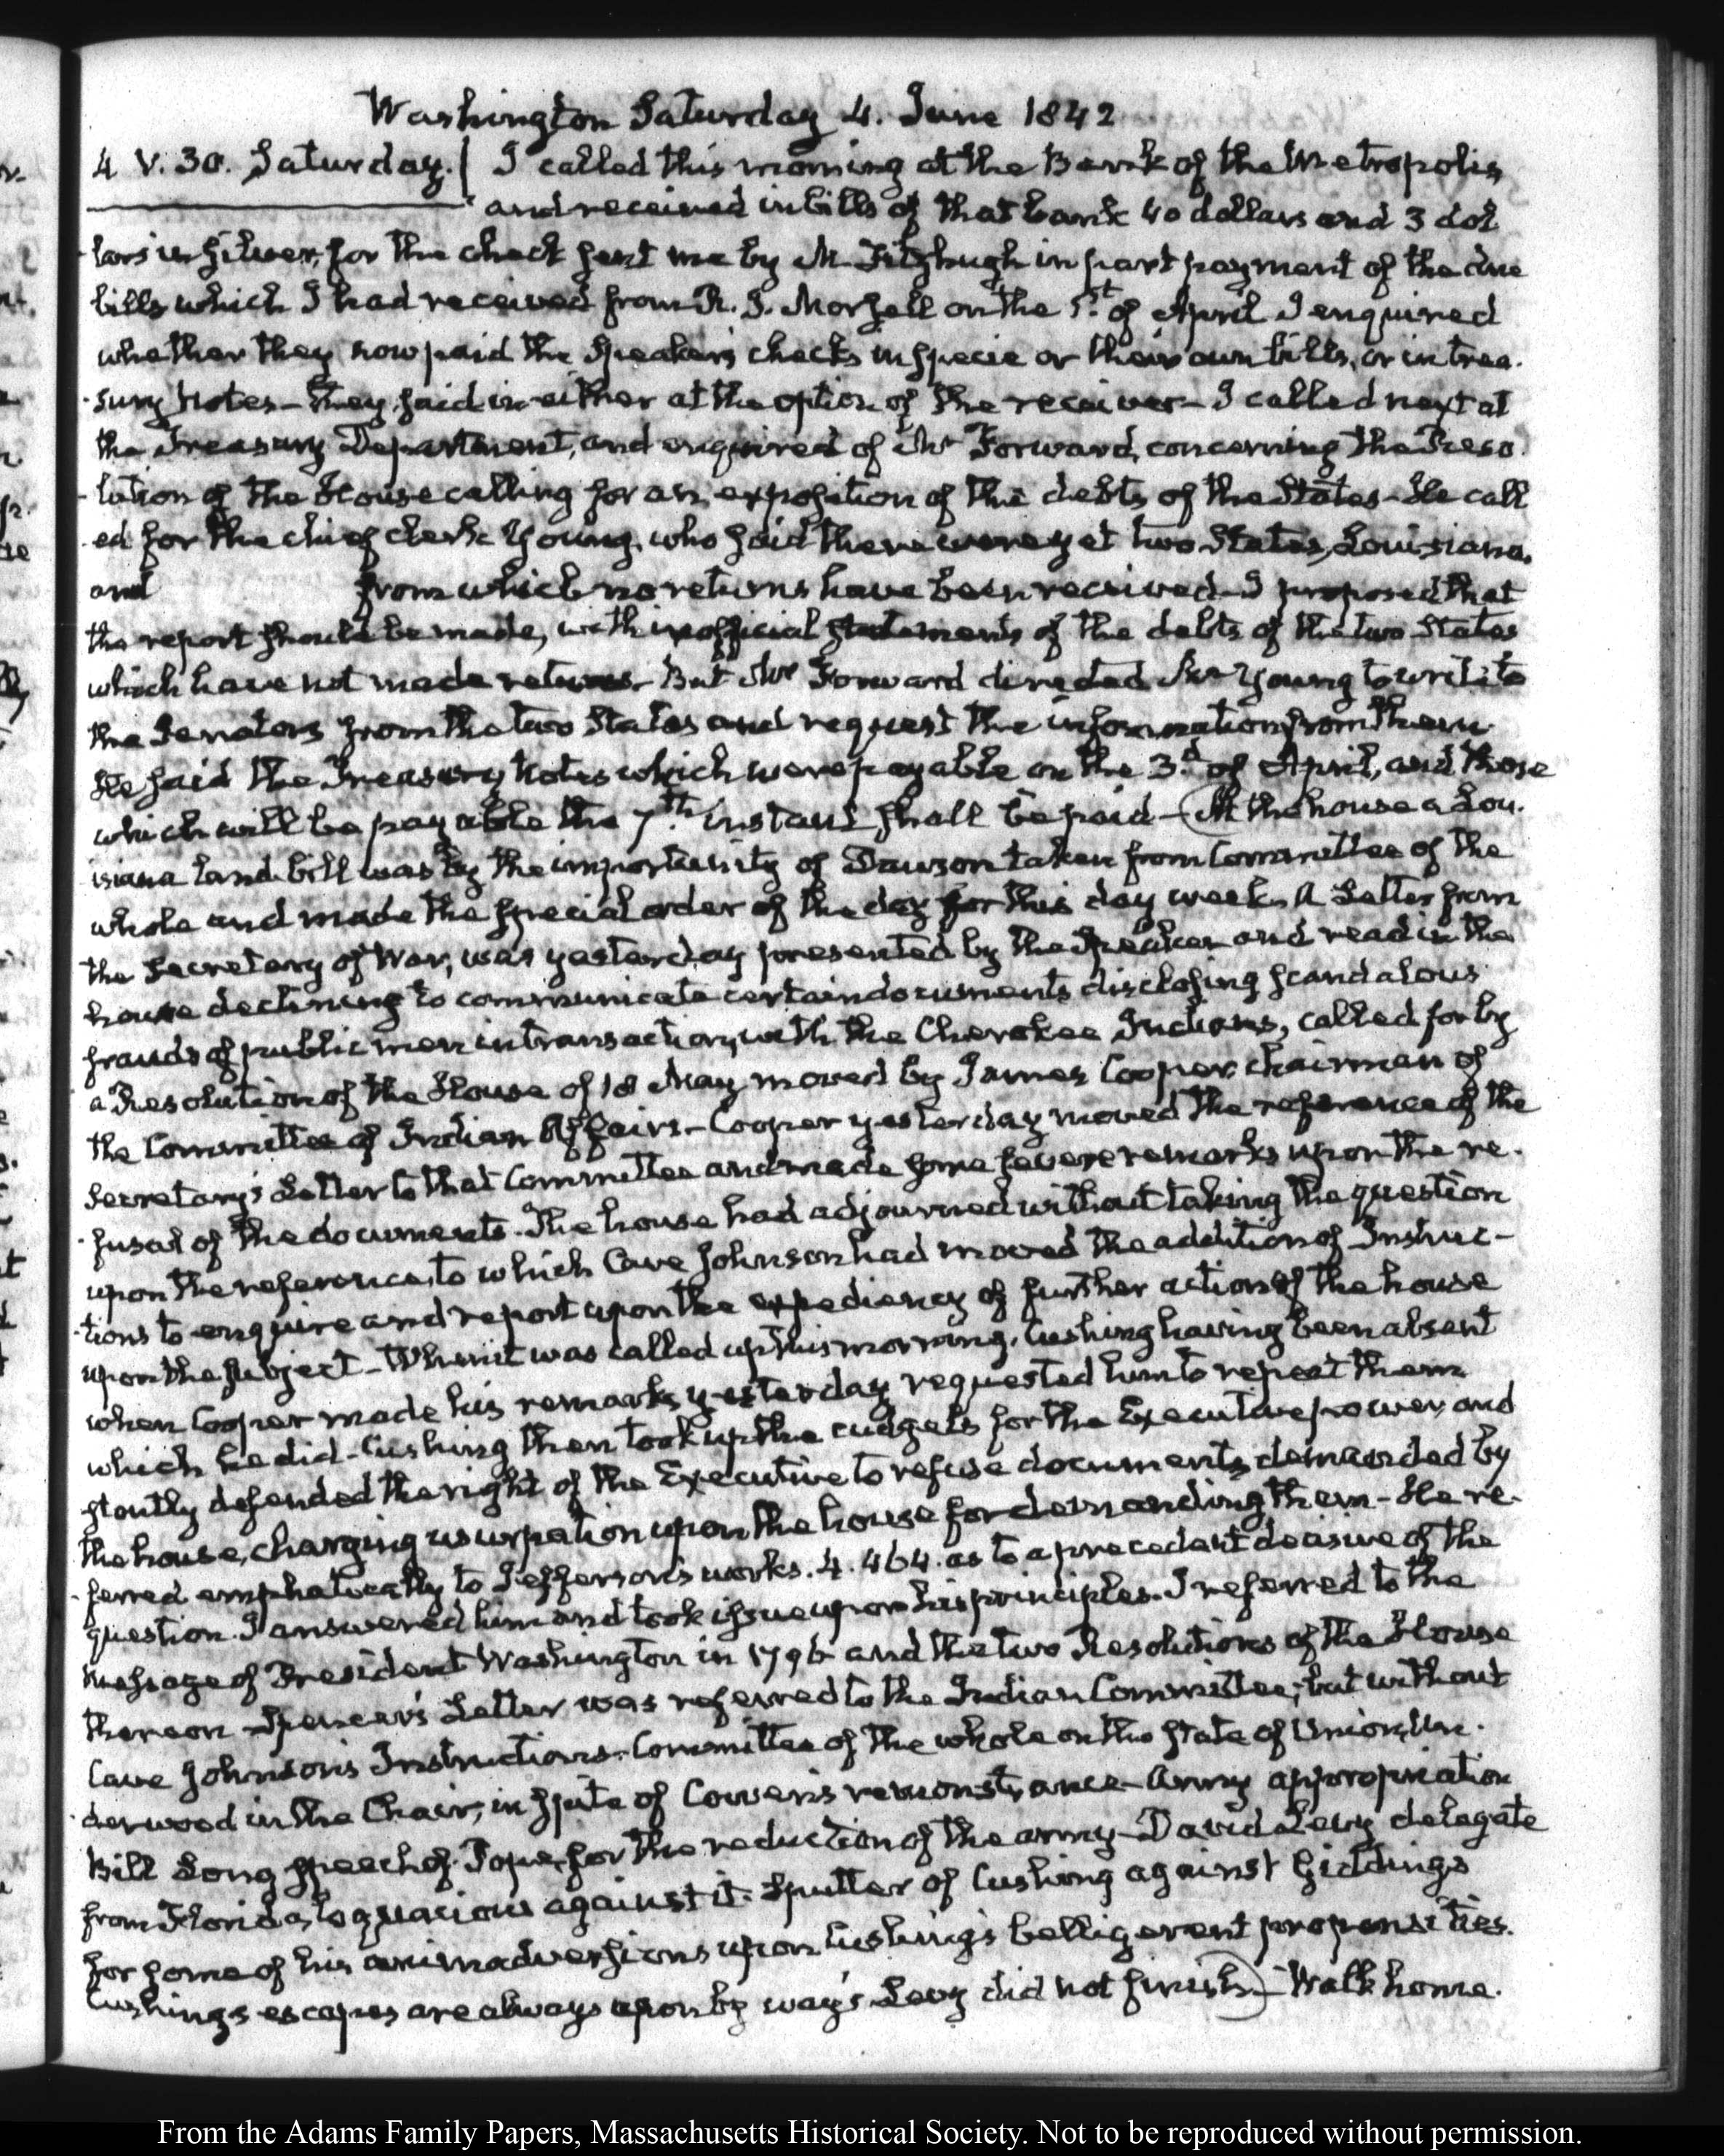 Washington Saturday 4. June 1842
4 V. 30. Saturday. | I called this morning at the Bank of the Metropolis
and received in bills of that bank 40 dollars and 3 dol
-lars in silver, for the check sent me by Mr Fitzhugh in part payment of the due
bills which I had received from R. S. Morsell on the 1st of April I enquired
whether they now paid the Speaker's checks in specie or their own bills, or in trea-
-sury notes – they said in either at the option of the receiver – I called next at
the Treasury Department, and enquired of Mr Forward, concerning the Reso-
-lution of the House calling for an exposition of the debts of the States – He call
-ed for the chief clerk Young, who said there were yet two States, Louisiana,
and from which no returns have been received – I proposed that
the report should be made, with inofficial statements of the debts of the two States
which have not made returns – But Mr Forward directed Mr Young to write to
the Senators from the two States and request the information from them.
He said the Treasury notes which were payable on the 3d of April, and those
which will be payable the 7th instant shall be paid – (At the house a Lou-
isiana land bill was by the importunity of Dawson taken from Committee of the
whole and made the special order of the day for this day week. A Letter from
the Secretary of War, was yesterday presented by the Speaker and read in the
house declining to communicate certain documents disclosing scandalous
frauds of public men in transactions with the Cherokee Indians, called for by
a Resolution of the House of 18 May moved by James Cooper chairman of
the Committee of Indian Affairs – Cooper yesterday moved the reference of the
Secretary's Letter to that Committee and made some severe remarks upon the re-
-fusal of the documents. The house had adjourned without taking the question
upon the reference, to which Cave Johnson had moved the addition of Instruc-
-tions to enquire and report upon the expediency of further action of the house
upon the subject – When it was called up this morning, Cushing having been absent
when Cooper made his remarks yesterday requested him to repeat them
which he did – Cushing then took up the cudgels for the Executive power, and
stoutly defended the right of the Executive to refuse documents demanded by
the house, charging usurpation upon the house for demanding them – He re-
-ferred emphatically to Jefferson's works. 4. 464. as to a precedent decisive of the
question. I answered him and took issue upon his principles. I referred to the
message of President Washington in 1796 and the two Resolutions of the House
thereon – Spencer's Letter was referred to the Indian Committee; but without
Cave Johnson's Instructions – Committee of the whole on the state of Union, Un-
-derwood in the Chair, in spite of Cowen's remonstrance – Army appropriation
Bill Long speech of Pope, for the reduction of the army – David Levy delegate
from Florida, loquacious against it. Sputter of Cushing against Giddings
for some of his animadversions upon Cushing's belligerent propensities.
Cushing's escapes are always upon by ways Levy did not finish) – Walk home.
From the Adams Family Papers, Massachusetts Historical Society. Not to be reproduced without permission.